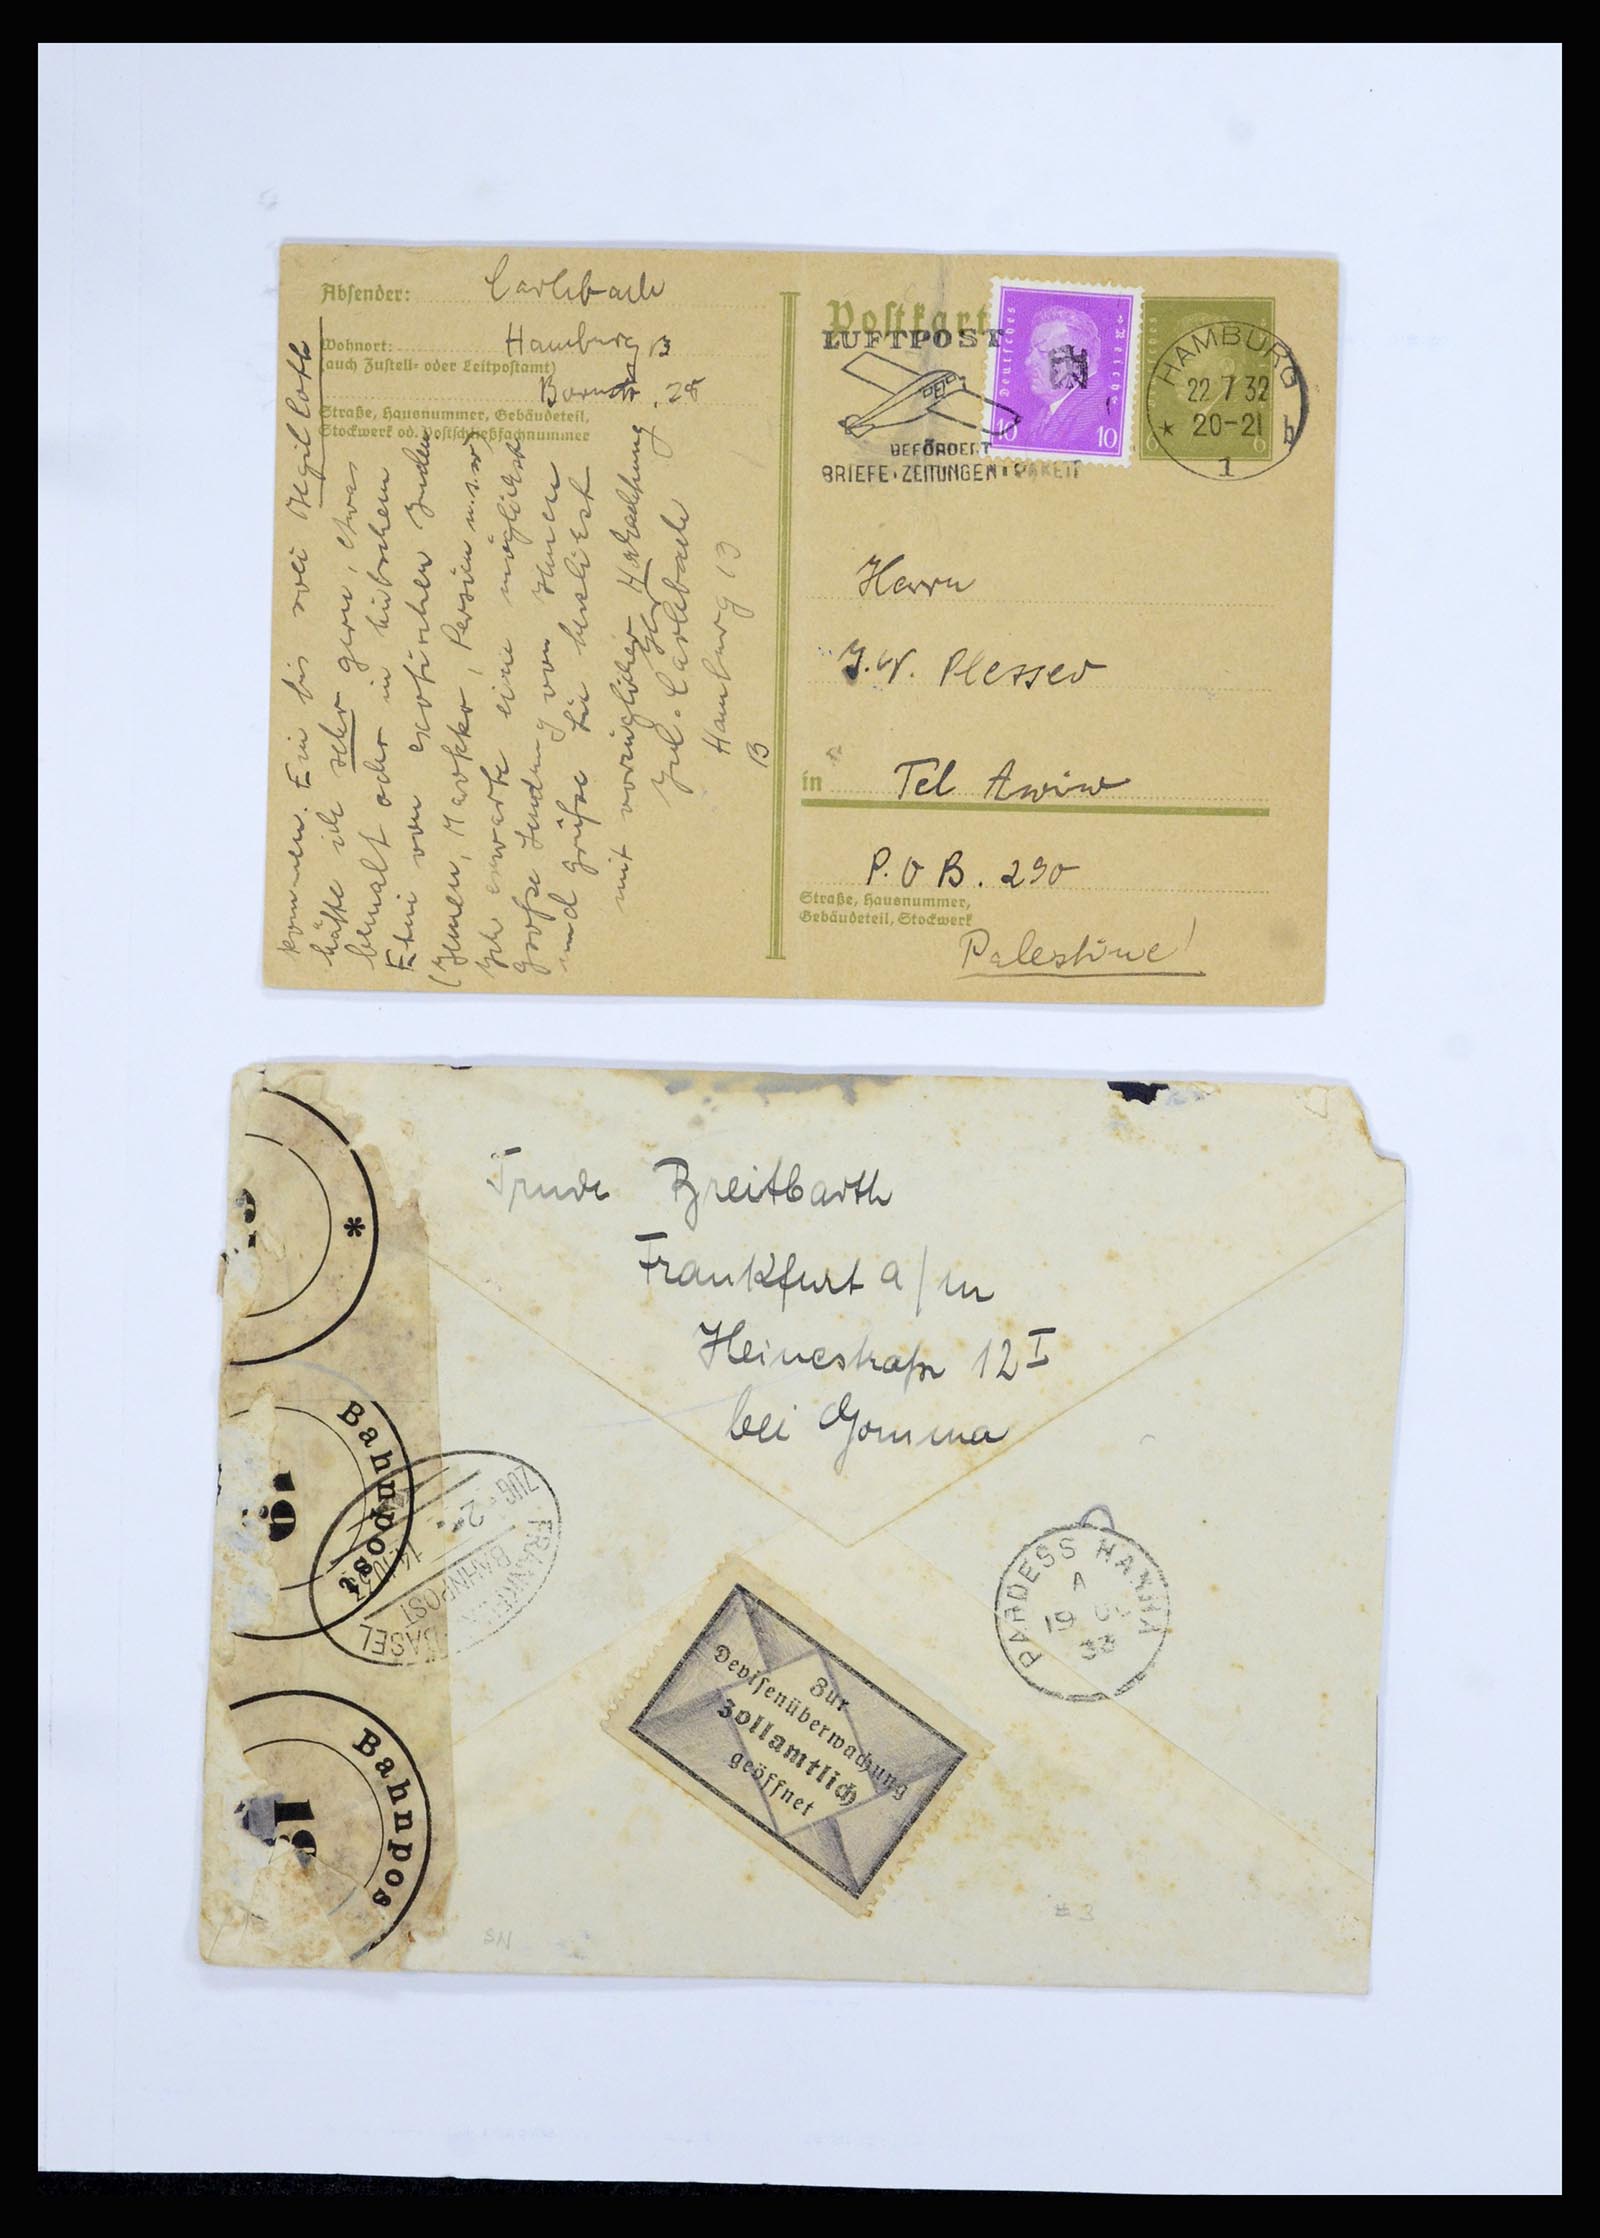 Absender: Carlebach
Wohnort: Hamburg 13
(auch Zustell- oder Leitpostamt)
Bornstr. 28
Straße, Hausnummer, Gebäudeteil,
Stockwerk od. Postschließfachnummer
kommen. Ein bis zwei Megilloth
hätte ich sehr gern, etwas
bemalt oder in hübschem
Etui von exotischen Juden
(Jemen, Marokko, Persien u.s.w.)
Ich erwarte eine möglichst
große Sendung von Ihnen
und grüße Sie herzlichst
mit vorzüglicher Hochachtung
Ihr
Jul. Carlebach
Hamburg 13
Postkarte
LUFTPOST
BEFÖRDERT
BRIEFE·ZEITUNGEN·PAKETE
Deutsches Reich
10 10
HAMBURG
22 7 32
* 20-21 h
1
6 6
Herrn
Plesser
in Tel Awiw
P.O B. 290
Straße, Hausnummer,
Gebäudeteil, Stockwerk
Palestine!
Trude Breitbarth
Frankfurt a/m
Heinestraße 12 I
bei Gomma
*
Bahnpost
Bahnpos
ZUG 2
BAHNPOST
BASEL
PARDESS HANNA
A
19
38
Zur
Devisenüberwachung
Zollamtlich
geöffnet
SN
# 3